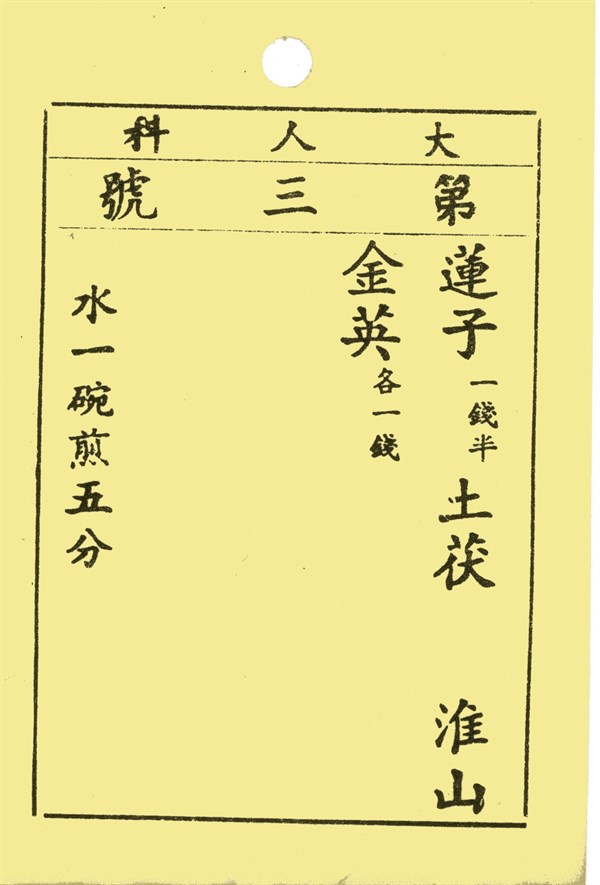 大人科
第三號
蓮子一錢半 土茯 淮山
金英各一錢
水一碗煎五分